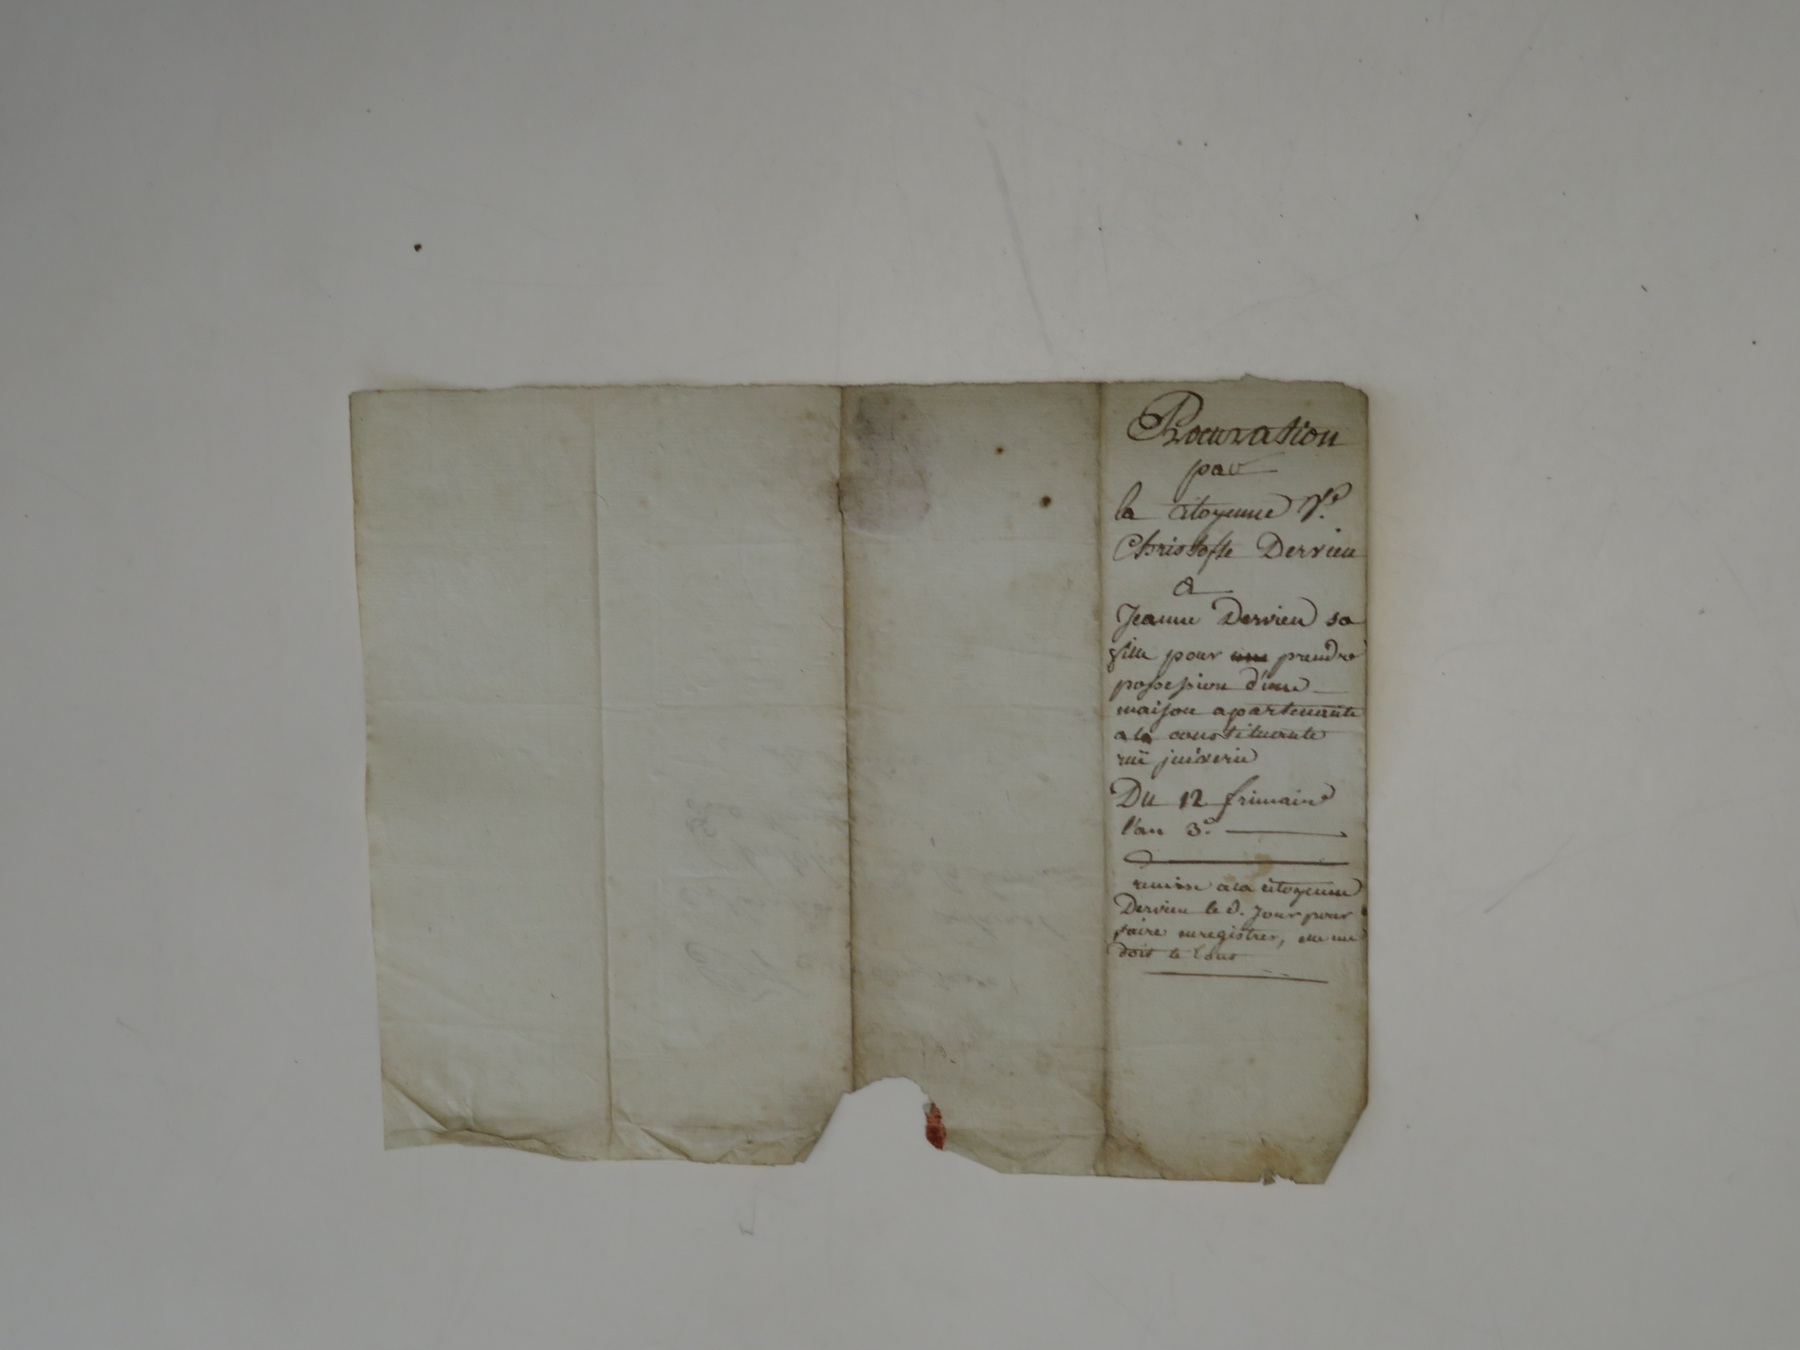 Procuration
par
la citoyenne Vᵉ
Christofle Dervieu
a
Jeanne Dervieu sa
fille pour prendre
possession d'une
maison apartenante
a la constituante
ruë juiverie
Du 12 frimaire
l'an 3ᵉ
remise a la citoyenne
Dervieu le d. jour pour
faire enregistrer, elle me
doit le tout